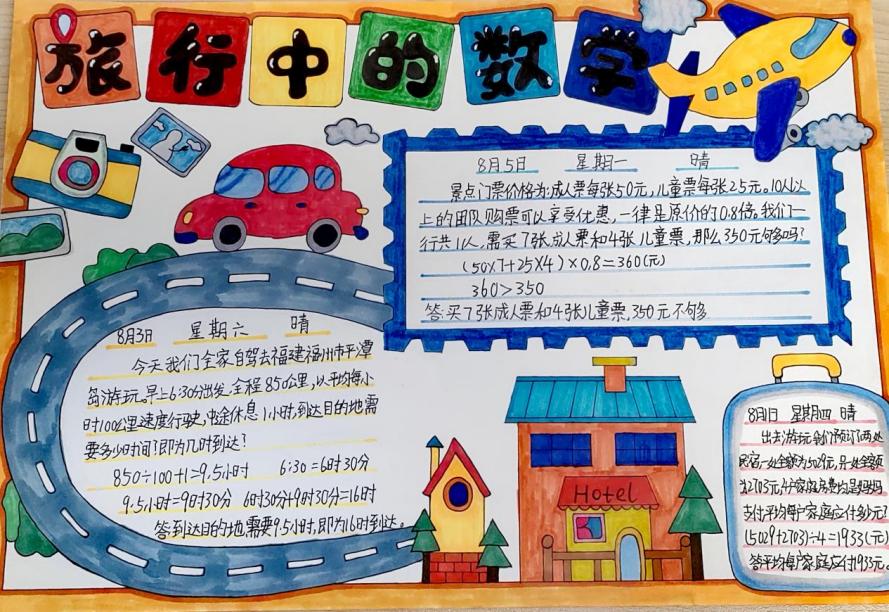 旅行中的数学
8月5日 星期一 晴
景点门票价格为:成人票每张50元,儿童票每张25元。10人以
上的团队购票可以享受优惠,一律是原价的0.8倍。我们一
行共11人,需买7张成人票和4张儿童票,那么350元够吗?
(50×7+25×4)×0.8=360(元)
360>350
答:买7张成人票和4张儿童票,350元不够
8月3日 星期六 晴
今天我们全家自驾去福建福州市平潭
岛游玩。早上6:30分出发,全程850公里,以平均每小
时100公里速度行驶,中途休息1小时,到达目的地需
要多少时间?即为几时到达?
850÷100+1=9.5小时 6:30=6时30分
9.5小时=9时30分 6时30分+9时30分=16时
答:到达目的地需要9.5小时,即为16时到达。
Hotel
8月1日 星期四 晴
出去游玩我们预订了两处
民宿一处金额为5029元,另一处金额
为2703元,4个家庭房费均是妈妈
支付,平均每户家庭应付多少元?
(5029+2703)÷4=1933(元)
答:平均每户家庭应付1933元。